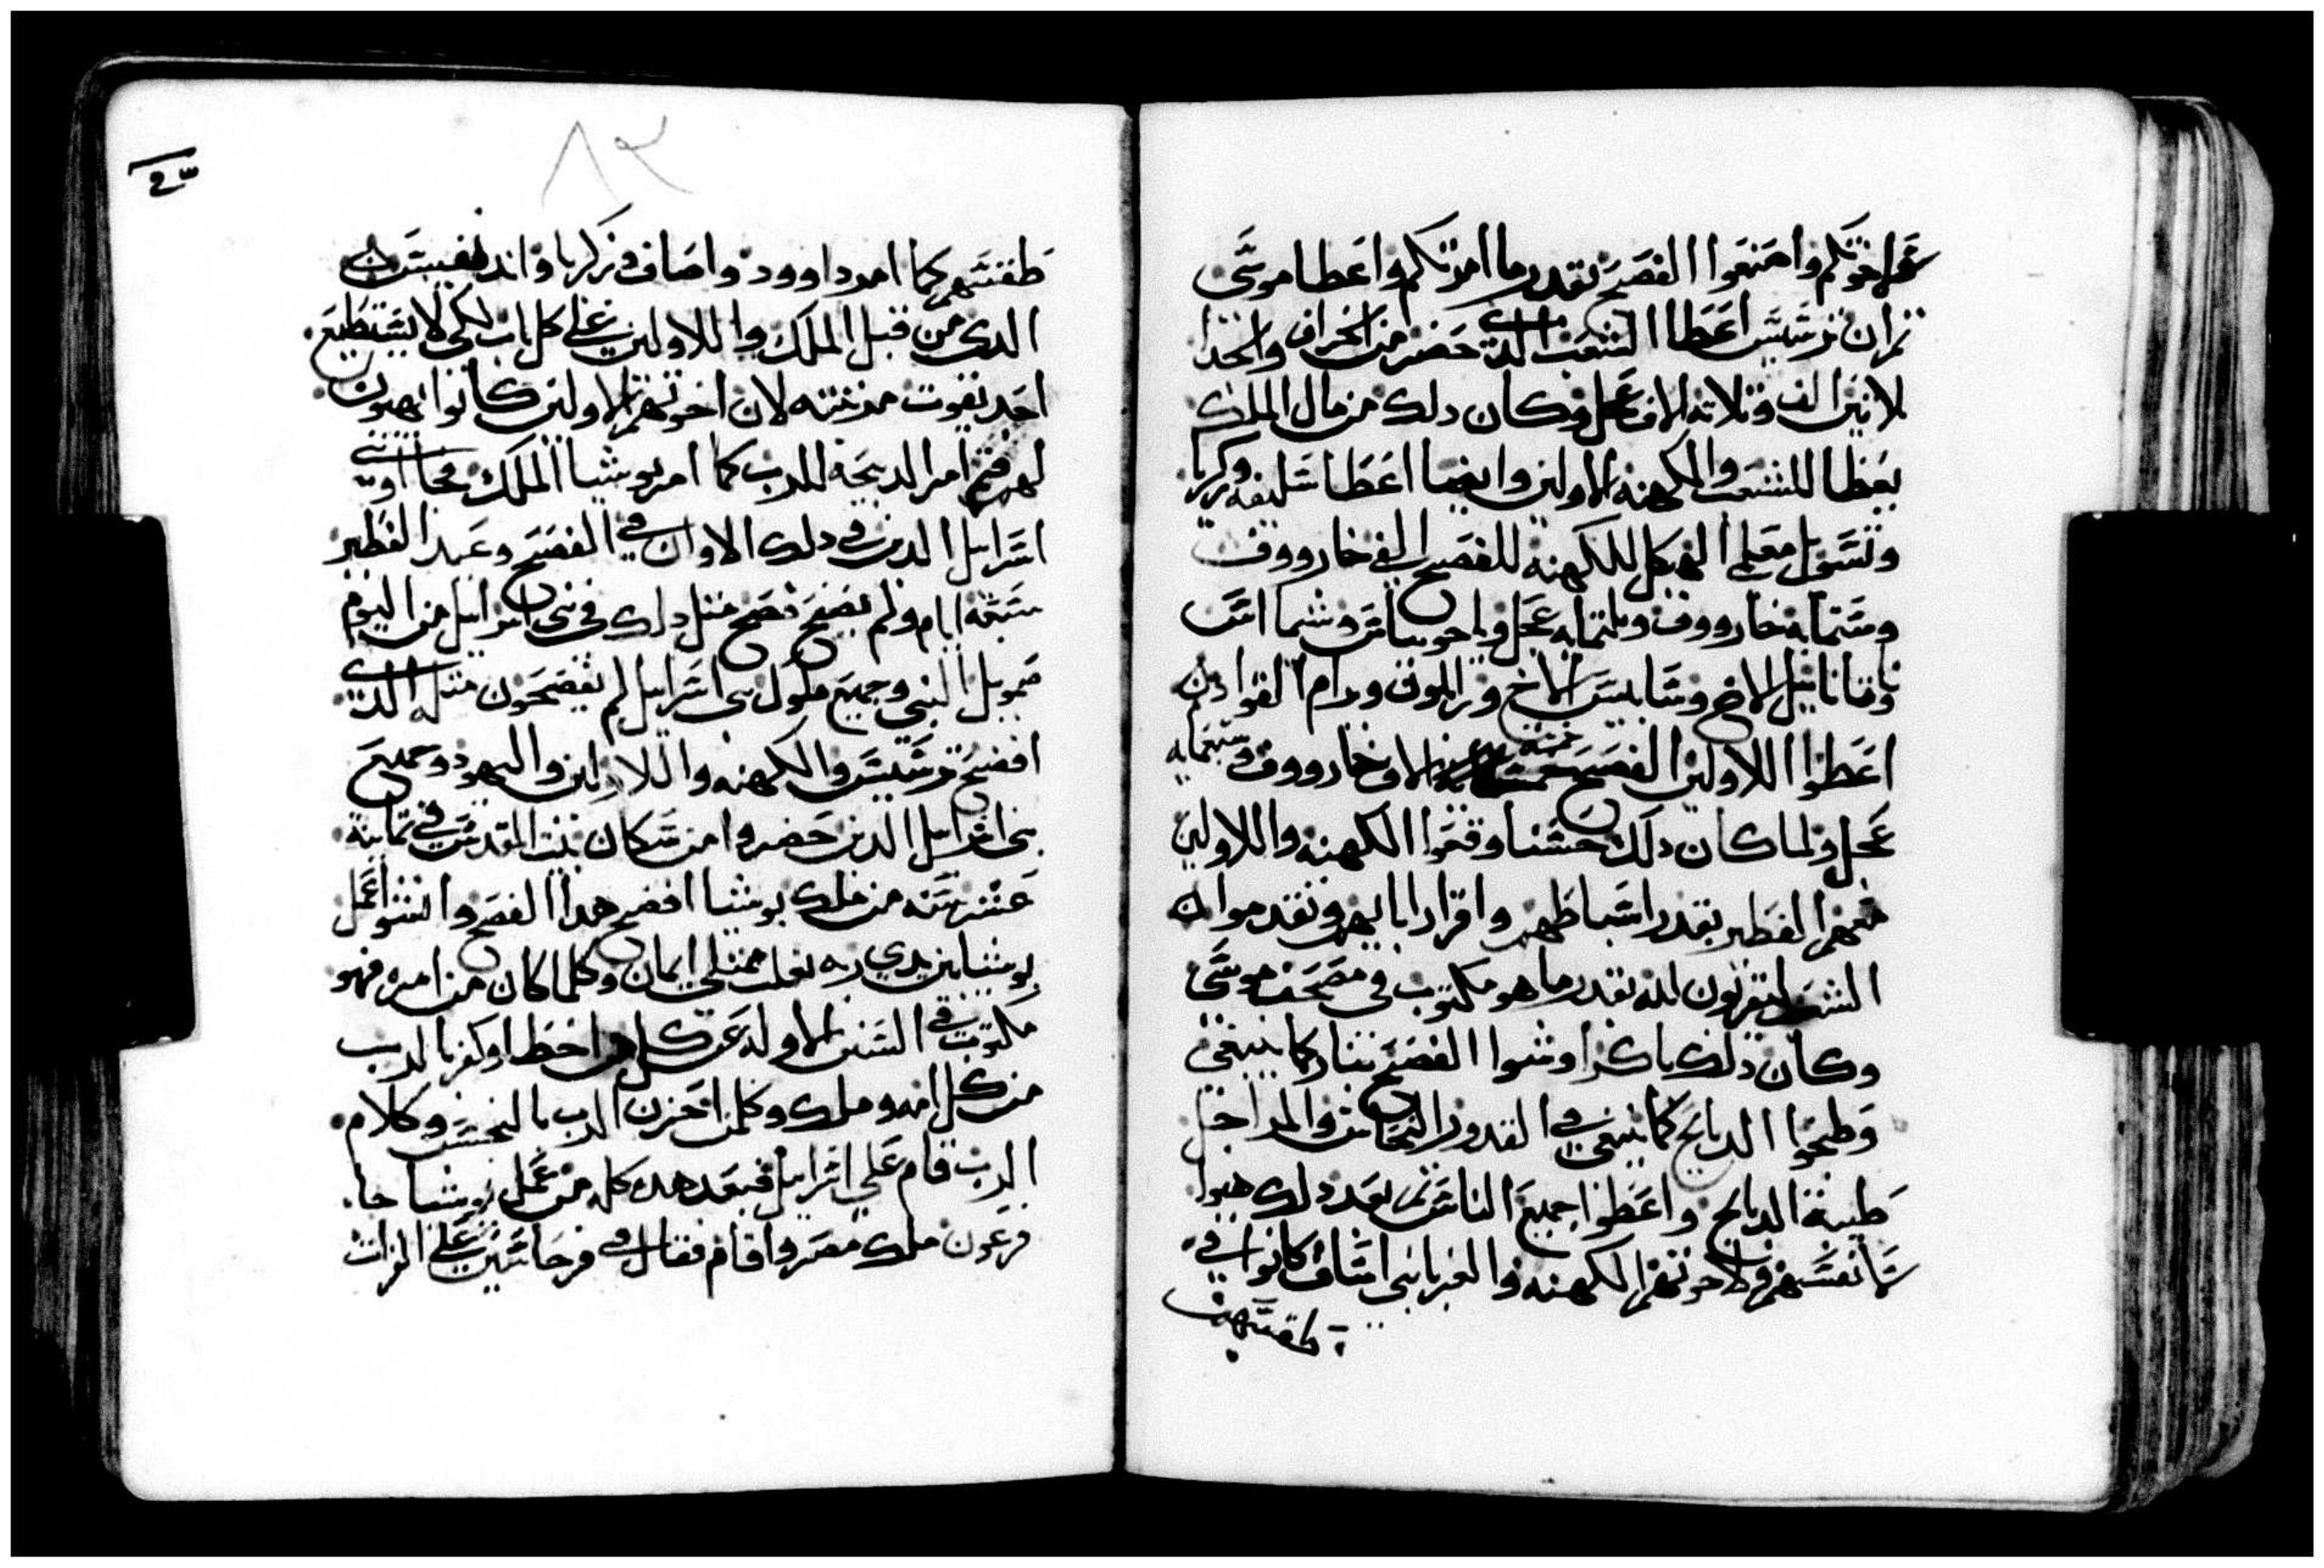 لاخوتكم واصنعوا الفصح بقدر ما امرتكم واعطا موسى
ثم ان يرشيس اعطا الشعب الدي حضر من الخراف والجدا
ثلاثين الف وثلاثه الاف عجل وكان دلك من مال الملك
يعطا للشعب والكهنه والاولين وايضا اعطا شليفه وزكريا
وتسويل معلمي الهيكل للكهنه للفصح الفي خارووف
وستمايه خارووف وثلتمايه عجل وياحونياس وشما اس
وناثانايل الاخ وسابيس الاخ وزالموق ويرام القوادين
اعطوا اللاولين الفصح خمسة الاف خارووف وسبعمايه
عجل ولما كان دلك حسنا وقفوا الكهنه واللاولين
معهم الفطير بقدر اسباطهم واقرار ابايهم وتقدموا الى
الشعب ليقربون لله بقدر ما هو مكتوب في مصحف موسى
وكان دلك باكرا وشوا الفصح بنار كما ينبغي
وطبخوا الدبايح كما ينبغي في القدور النحاس والمراجل
طيبة الدبايح واعطوا جميع الناس ثم بعد دلك هيوا
لانفسهم ولاخوتهم الكهنه والعبرا بني اساف كانوا في
طقسهم
٨٢
طقسهم كما امر داوود واصاف وزكريا واند
الدي من قبل الملك واللاولين على كل باب لكي لا يستطيع
احد يفوت مدخته لان اخوتهم الاولين كانوا يهيون
لهم فتم امر الدبيحه للرب كما امر يوشيا الملك فجا اوبني
اسرايل الدين في دلك الاوان في الفصح وعيد الفطير
سبعة ايام ولم يفصح فصح مثل دلك في بني اسرايل من اليوم
صمويل النبي وجميع ملوك بني اسرايل لم يفصحون مثله الدي
افصح يرشيس والكهنه واللاولين واليهود وجميع
بني اسرايل الدين حضروا من سكان بيت المقدس في ثمانية
عشر سنه من ملك يوشيا افصح هدا الفصح واستوا عمل
يوشيا بين يدي ربه بقلب ممتلي ايمان وكلما كان من امره فهو
مكتوب في السنين الاوله عن كل من اخطا وكفر بالرب
من كل امه وملك وكلمن احزن الرب بالنجس وكلام
الرب قام على اسرايل فبعد هدا كله من عمل يوشيا جا
فرعون ملك مصر واقام فقال في فرحاسين على الفرات